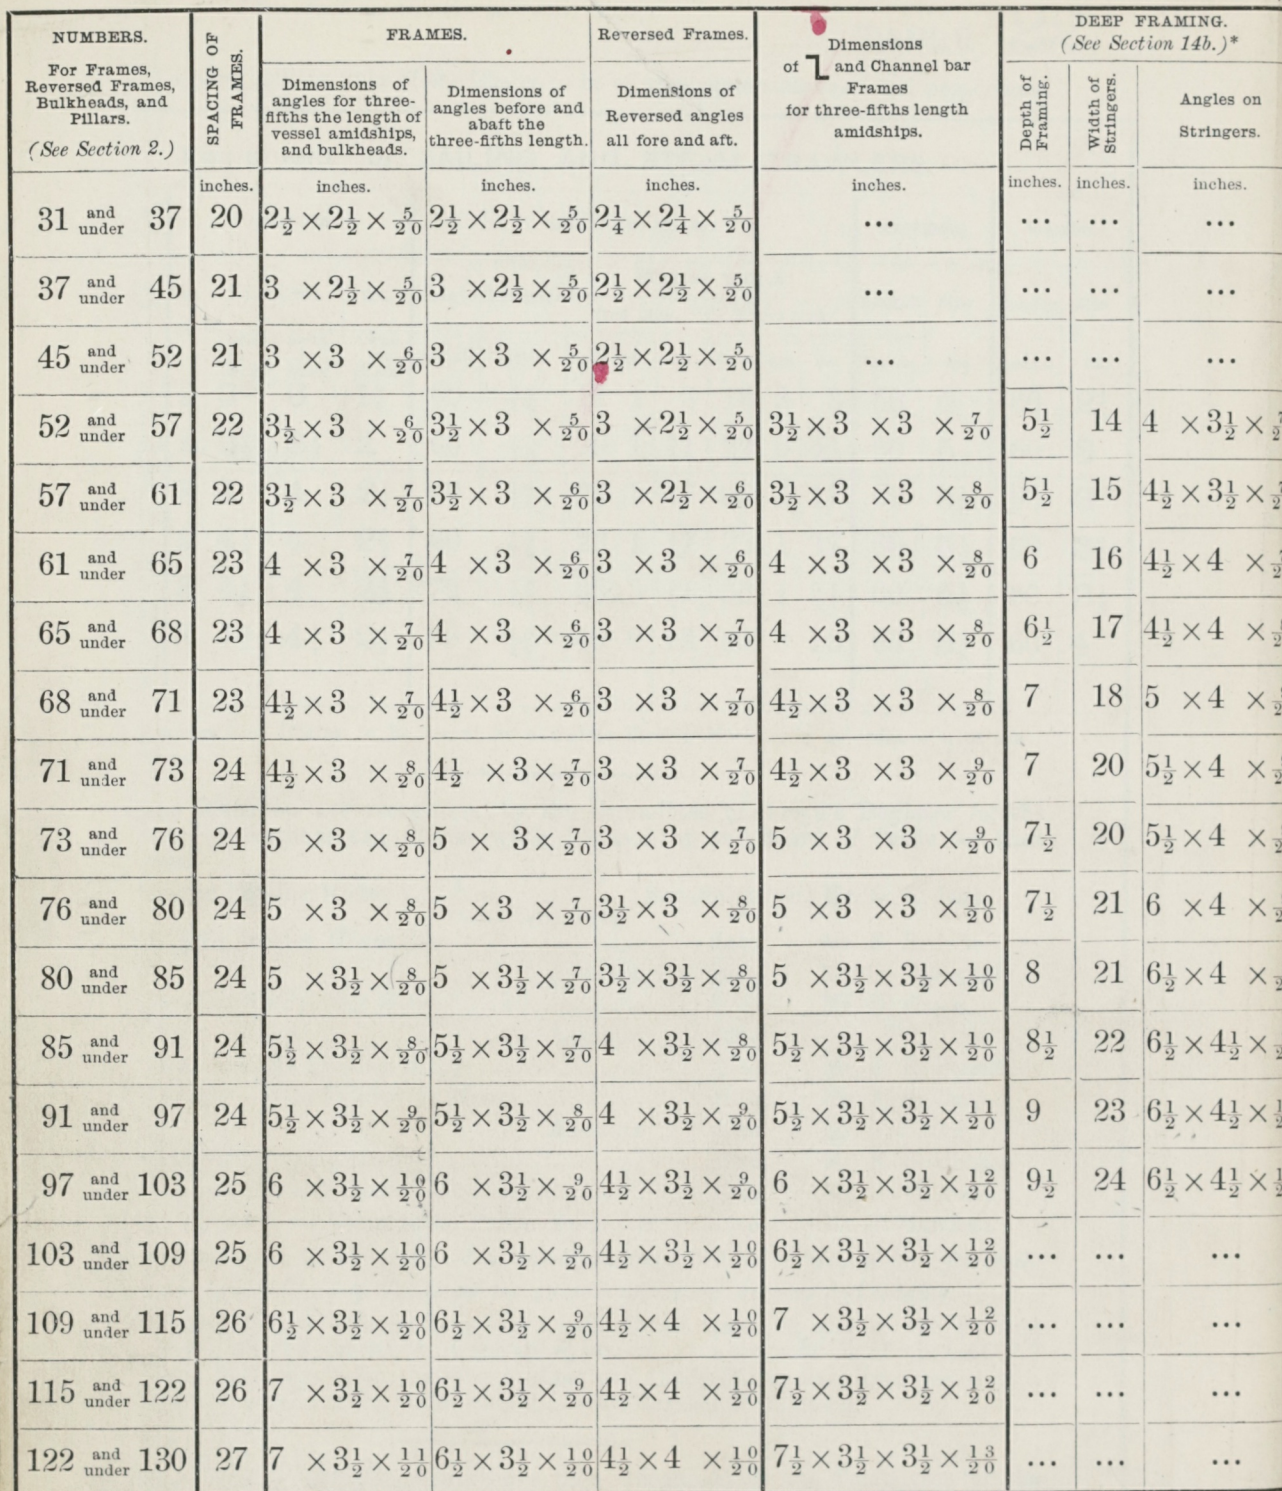 NUMBERS.
For Frames,
Reversed Frames,
Bulkheads, and
Pillars.
(See Section 2.)
SPACING OF
FRAMES.
FRAMES.
Dimensions of
angles for three-
fifths the length of
vessel amidships,
and bulkheads.
Dimensions of
angles before and
abaft the
three-fifths length.
Reversed Frames.
Dimensions of
Reversed angles
all fore and aft.
Dimensions
of and Channel bar
Frames
for three-fifths length
amidships.
DEEP FRAMING.
(See Section 14b.)*
Depth of
Framing.
Width of
Stringers.
Angles on
Stringers.
inches. inches. inches. inches. inches. inches. inches. inches.
31 and under 37 20 2½ × 2½ × 5/20 2½ × 2½ × 5/20 2¼ × 2¼ × 5/20 ... ... ... ...
37 and under 45 21 3 × 2½ × 5/20 3 × 2½ × 5/20 2½ × 2½ × 5/20 ... ... ... ...
45 and under 52 21 3 × 3 × 6/20 3 × 3 × 5/20 2½ × 2½ × 5/20 ... ... ... ...
52 and under 57 22 3½ × 3 × 6/20 3½ × 3 × 5/20 3 × 2½ × 5/20 3½ × 3 × 3 × 7/20 5½ 14 4 × 3½ ×
57 and under 61 22 3½ × 3 × 7/20 3½ × 3 × 6/20 3 × 2½ × 6/20 3½ × 3 × 3 × 8/20 5½ 15 4½ × 3½ ×
61 and under 65 23 4 × 3 × 7/20 4 × 3 × 6/20 3 × 3 × 6/20 4 × 3 × 3 × 8/20 6 16 4½ × 4 ×
65 and under 68 23 4 × 3 × 7/20 4 × 3 × 6/20 3 × 3 × 7/20 4 × 3 × 3 × 8/20 6½ 17 4½ × 4 ×
68 and under 71 23 4½ × 3 × 7/20 4½ × 3 × 6/20 3 × 3 × 7/20 4½ × 3 × 3 × 8/20 7 18 5 × 4 ×
71 and under 73 24 4½ × 3 × 8/20 4½ × 3 × 7/20 3 × 3 × 7/20 4½ × 3 × 3 × 9/20 7 20 5½ × 4 ×
73 and under 76 24 5 × 3 × 8/20 5 × 3 × 7/20 3 × 3 × 7/20 5 × 3 × 3 × 9/20 7½ 20 5½ × 4 ×
76 and under 80 24 5 × 3 × 8/20 5 × 3 × 7/20 3½ × 3 × 8/20 5 × 3 × 3 × 10/20 7½ 21 6 × 4 ×
80 and under 85 24 5 × 3½ × 8/20 5 × 3½ × 7/20 3½ × 3½ × 8/20 5 × 3½ × 3½ × 10/20 8 21 6½ × 4 ×
85 and under 91 24 5½ × 3½ × 8/20 5½ × 3½ × 7/20 4 × 3½ × 8/20 5½ × 3½ × 3½ × 10/20 8½ 22 6½ × 4½ ×
91 and under 97 24 5½ × 3½ × 9/20 5½ × 3½ × 8/20 4 × 3½ × 9/20 5½ × 3½ × 3½ × 11/20 9 23 6½ × 4½ ×
97 and under 103 25 6 × 3½ × 10/20 6 × 3½ × 9/20 4½ × 3½ × 9/20 6 × 3½ × 3½ × 12/20 9½ 24 6½ × 4½ ×
103 and under 109 25 6 × 3½ × 10/20 6 × 3½ × 9/20 4½ × 3½ × 10/20 6½ × 3½ × 3½ × 12/20 ... ... ...
109 and under 115 26 6½ × 3½ × 10/20 6½ × 3½ × 9/20 4½ × 4 × 10/20 7 × 3½ × 3½ × 12/20 ... ... ...
115 and under 122 26 7 × 3½ × 10/20 6½ × 3½ × 9/20 4½ × 4 × 10/20 7½ × 3½ × 3½ × 12/20 ... ... ...
122 and under 130 27 7 × 3½ × 11/20 6½ × 3½ × 10/20 4½ × 4 × 10/20 7½ × 3½ × 3½ × 13/20 ... ... ...